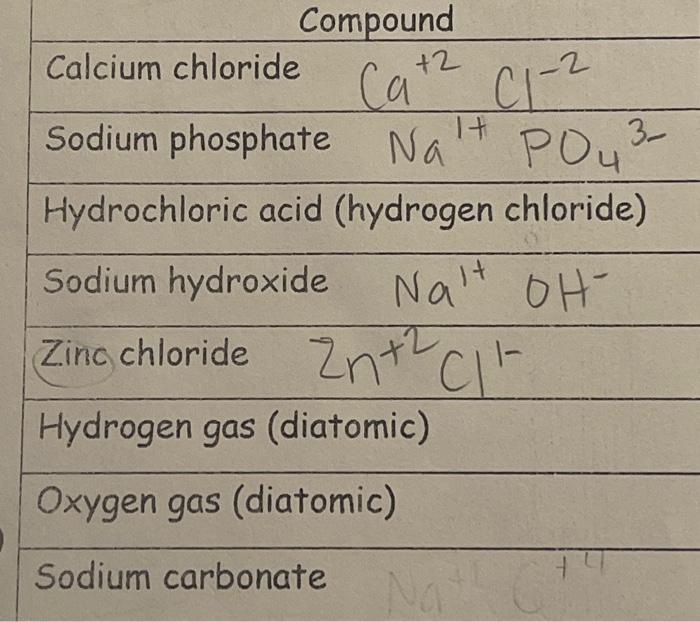 Compound
Calcium chloride Ca⁺² Cl⁻²
Sodium phosphate Na¹⁺ PO₄³⁻
Hydrochloric acid (hydrogen chloride)
Sodium hydroxide Na¹⁺ OH⁻
Zinc chloride Zn⁺² Cl¹⁻
Hydrogen gas (diatomic)
Oxygen gas (diatomic)
Sodium carbonate Na⁺¹ C⁺⁴